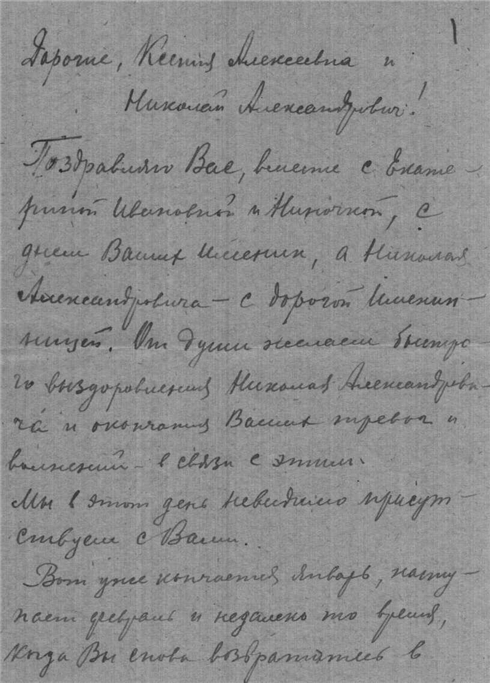 1
Дорогие, Ксения Алексеевна и
Николай Александрович!
Поздравляю Вас, вместе с Екате-
риной Ивановной и Ниночкой, с
днем Ваших имений, а Николая
Александровича - с дорогой Именин-
ницей. От души желаем быстро-
го выздоровления Николая Александрови-
ча и окончания Ваших тревог и
волнений - в связи с этим.
Мы в этот день невидимо присут-
ствуем с Вами.
Вот уже кончается январь, насту-
пает февраль и недалеко то время,
когда Вы снова возвратитесь в